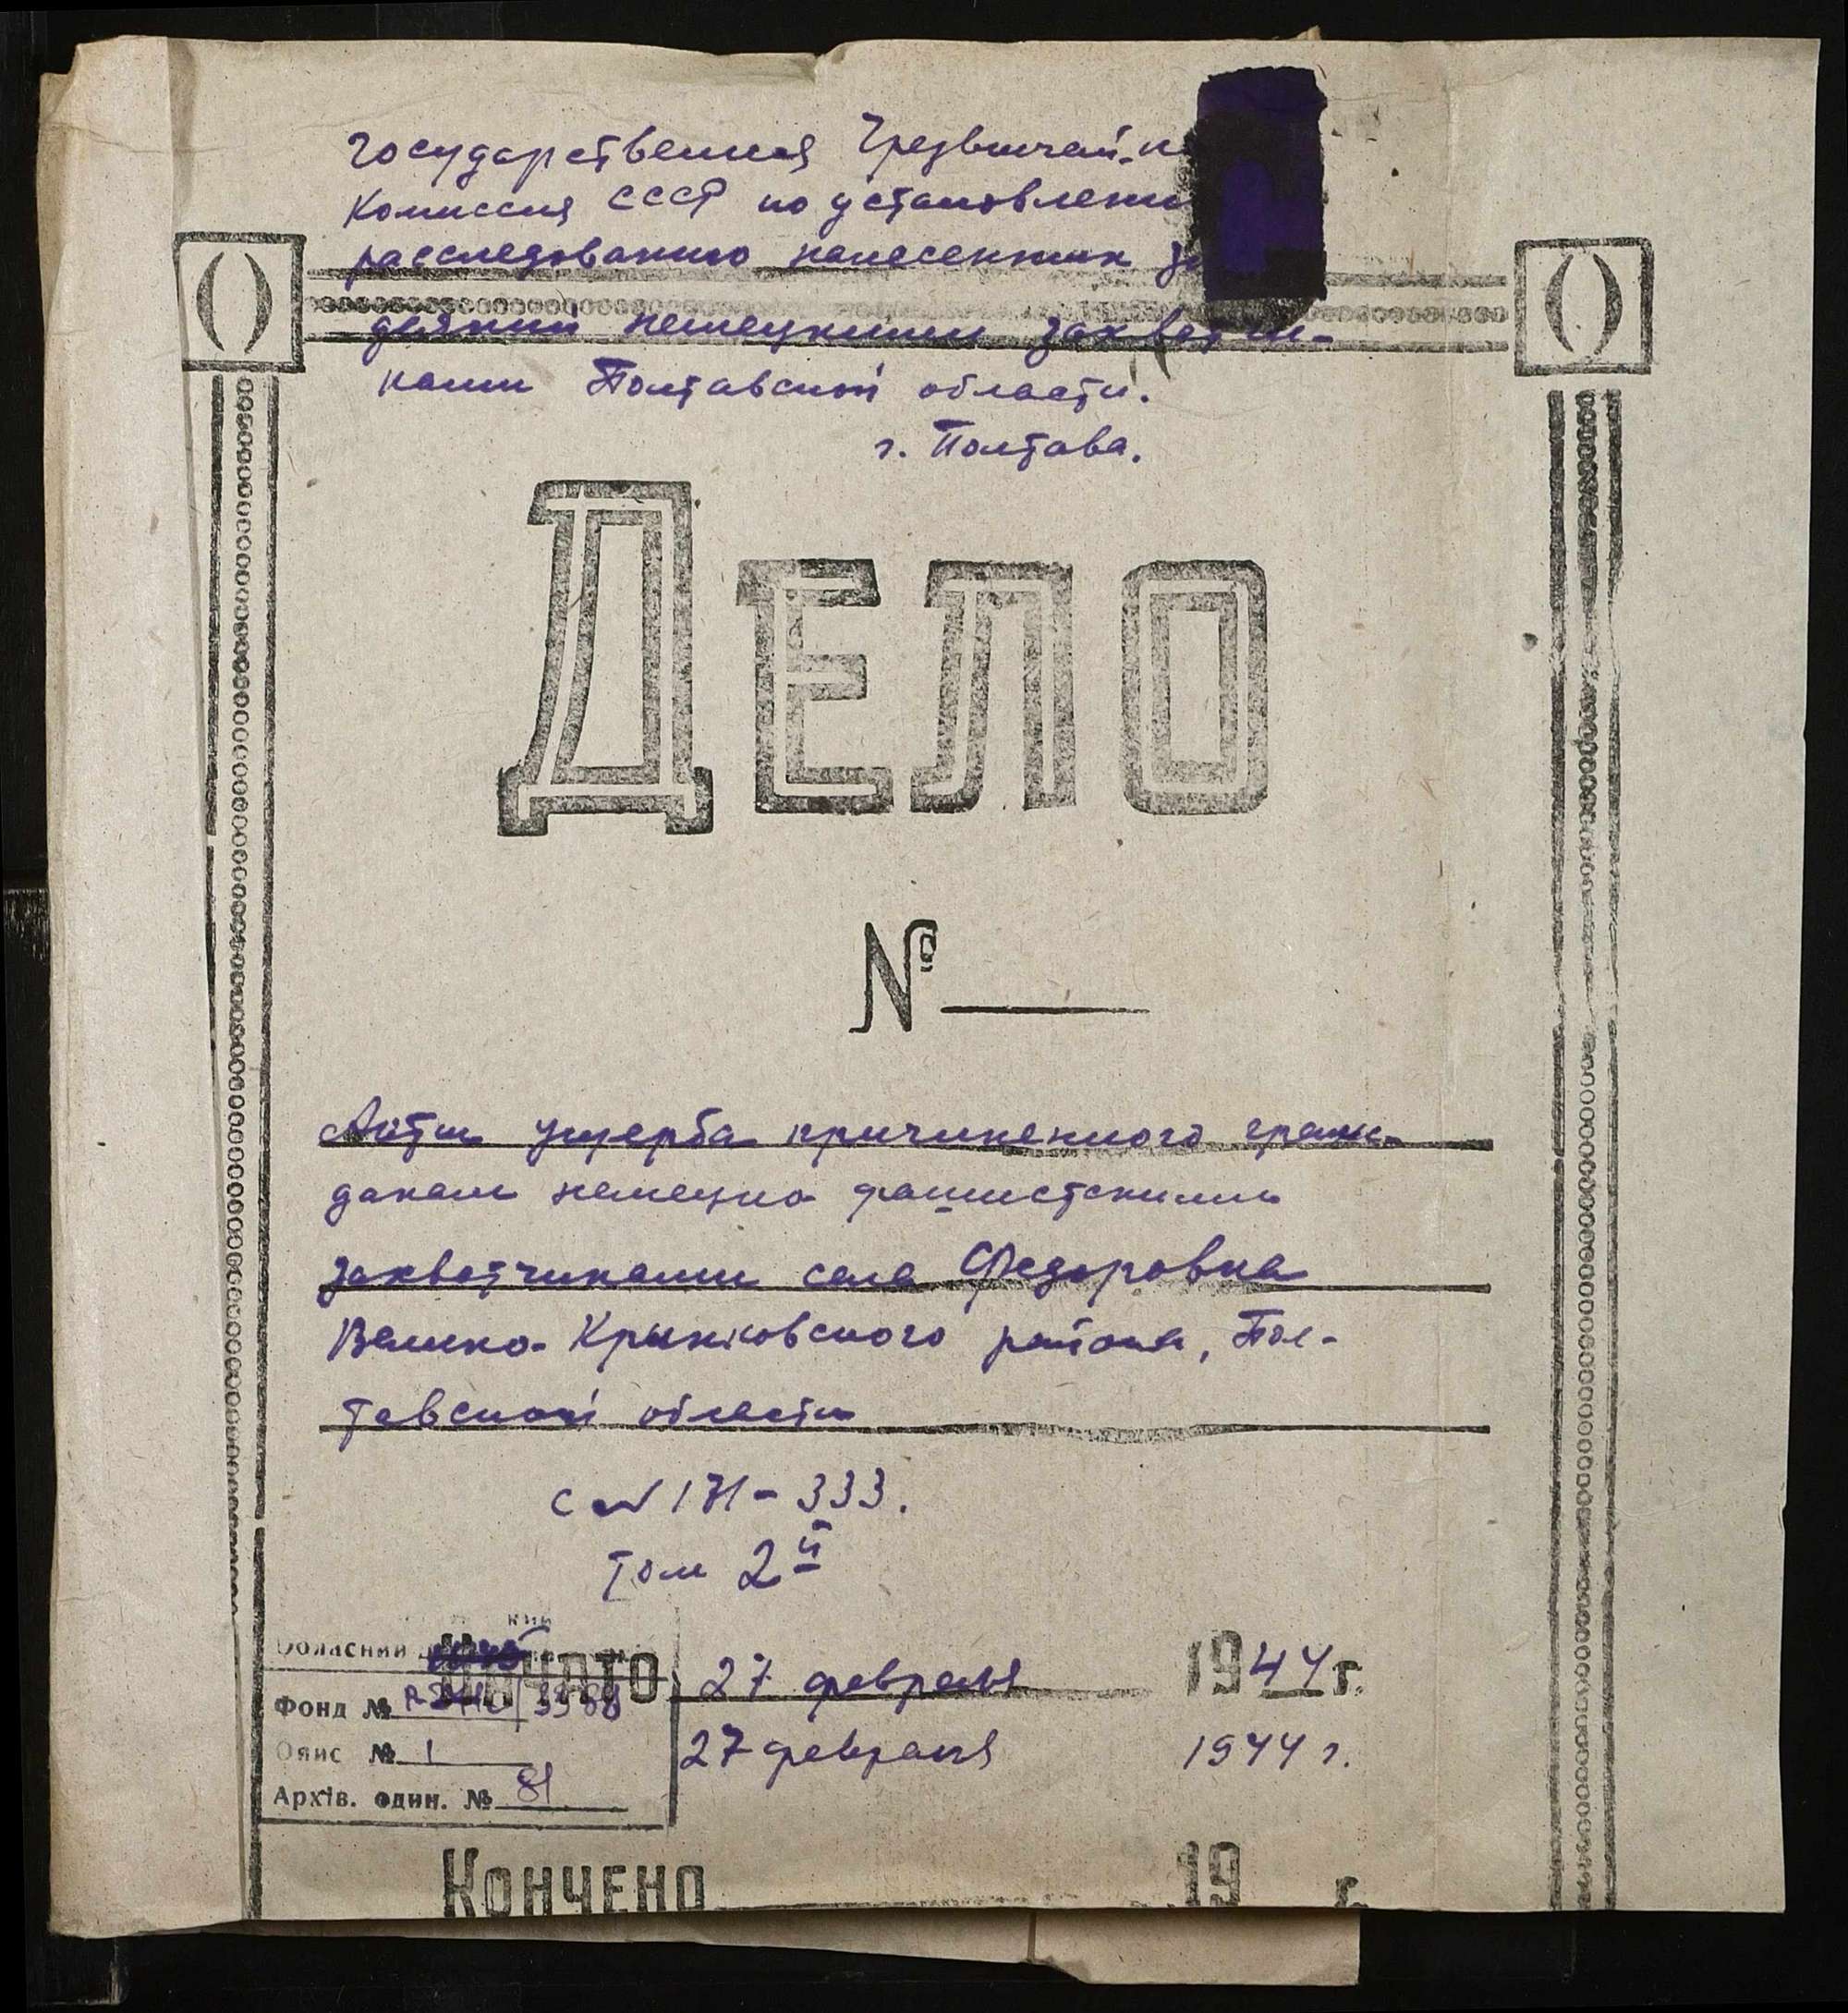 Государственная Чрезвычай-н
Комиссия СССР по установлени
расследованию нанесенных з
деяний немецкими захватчи-
ками Полтавской области.
г. Полтава.
ДЕЛО
№
Акты ущерба причиненного граж-
данам немецко фашистскими
захватчиками села Федоровка
Велико-Крынковского района, Пол-
тавской области
с № 171-333.
Том 2й
Обласний
НАЧАТО 27 февраля 1944 г.
Фонд № 3388
Опис № 1
27 февраля 1944 г.
Архів. один. № 81
КОНЧЕНО 19 г.